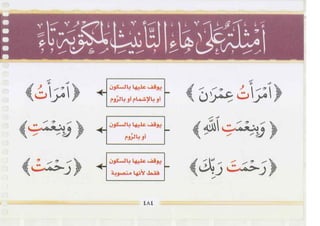 أمثلة على هاء التأنيث المكتوبة تاء
﴿ٱمْرَأَتُ عِمْرَٰنَ﴾ يوقف عليها بالسكون أو بالإشمام أو بالرَّوم ﴿ٱمْرَأَتُ﴾
﴿وَبِنِعْمَتِ ٱللَّهِ﴾ يوقف عليها بالسكون أو بالرَّوم ﴿وَبِنِعْمَتِ﴾
﴿رَحْمَتَ رَبِّكَ﴾ يوقف عليها بالسكون فقط لأنها منصوبة ﴿رَحْمَتْ﴾
٤٨٤